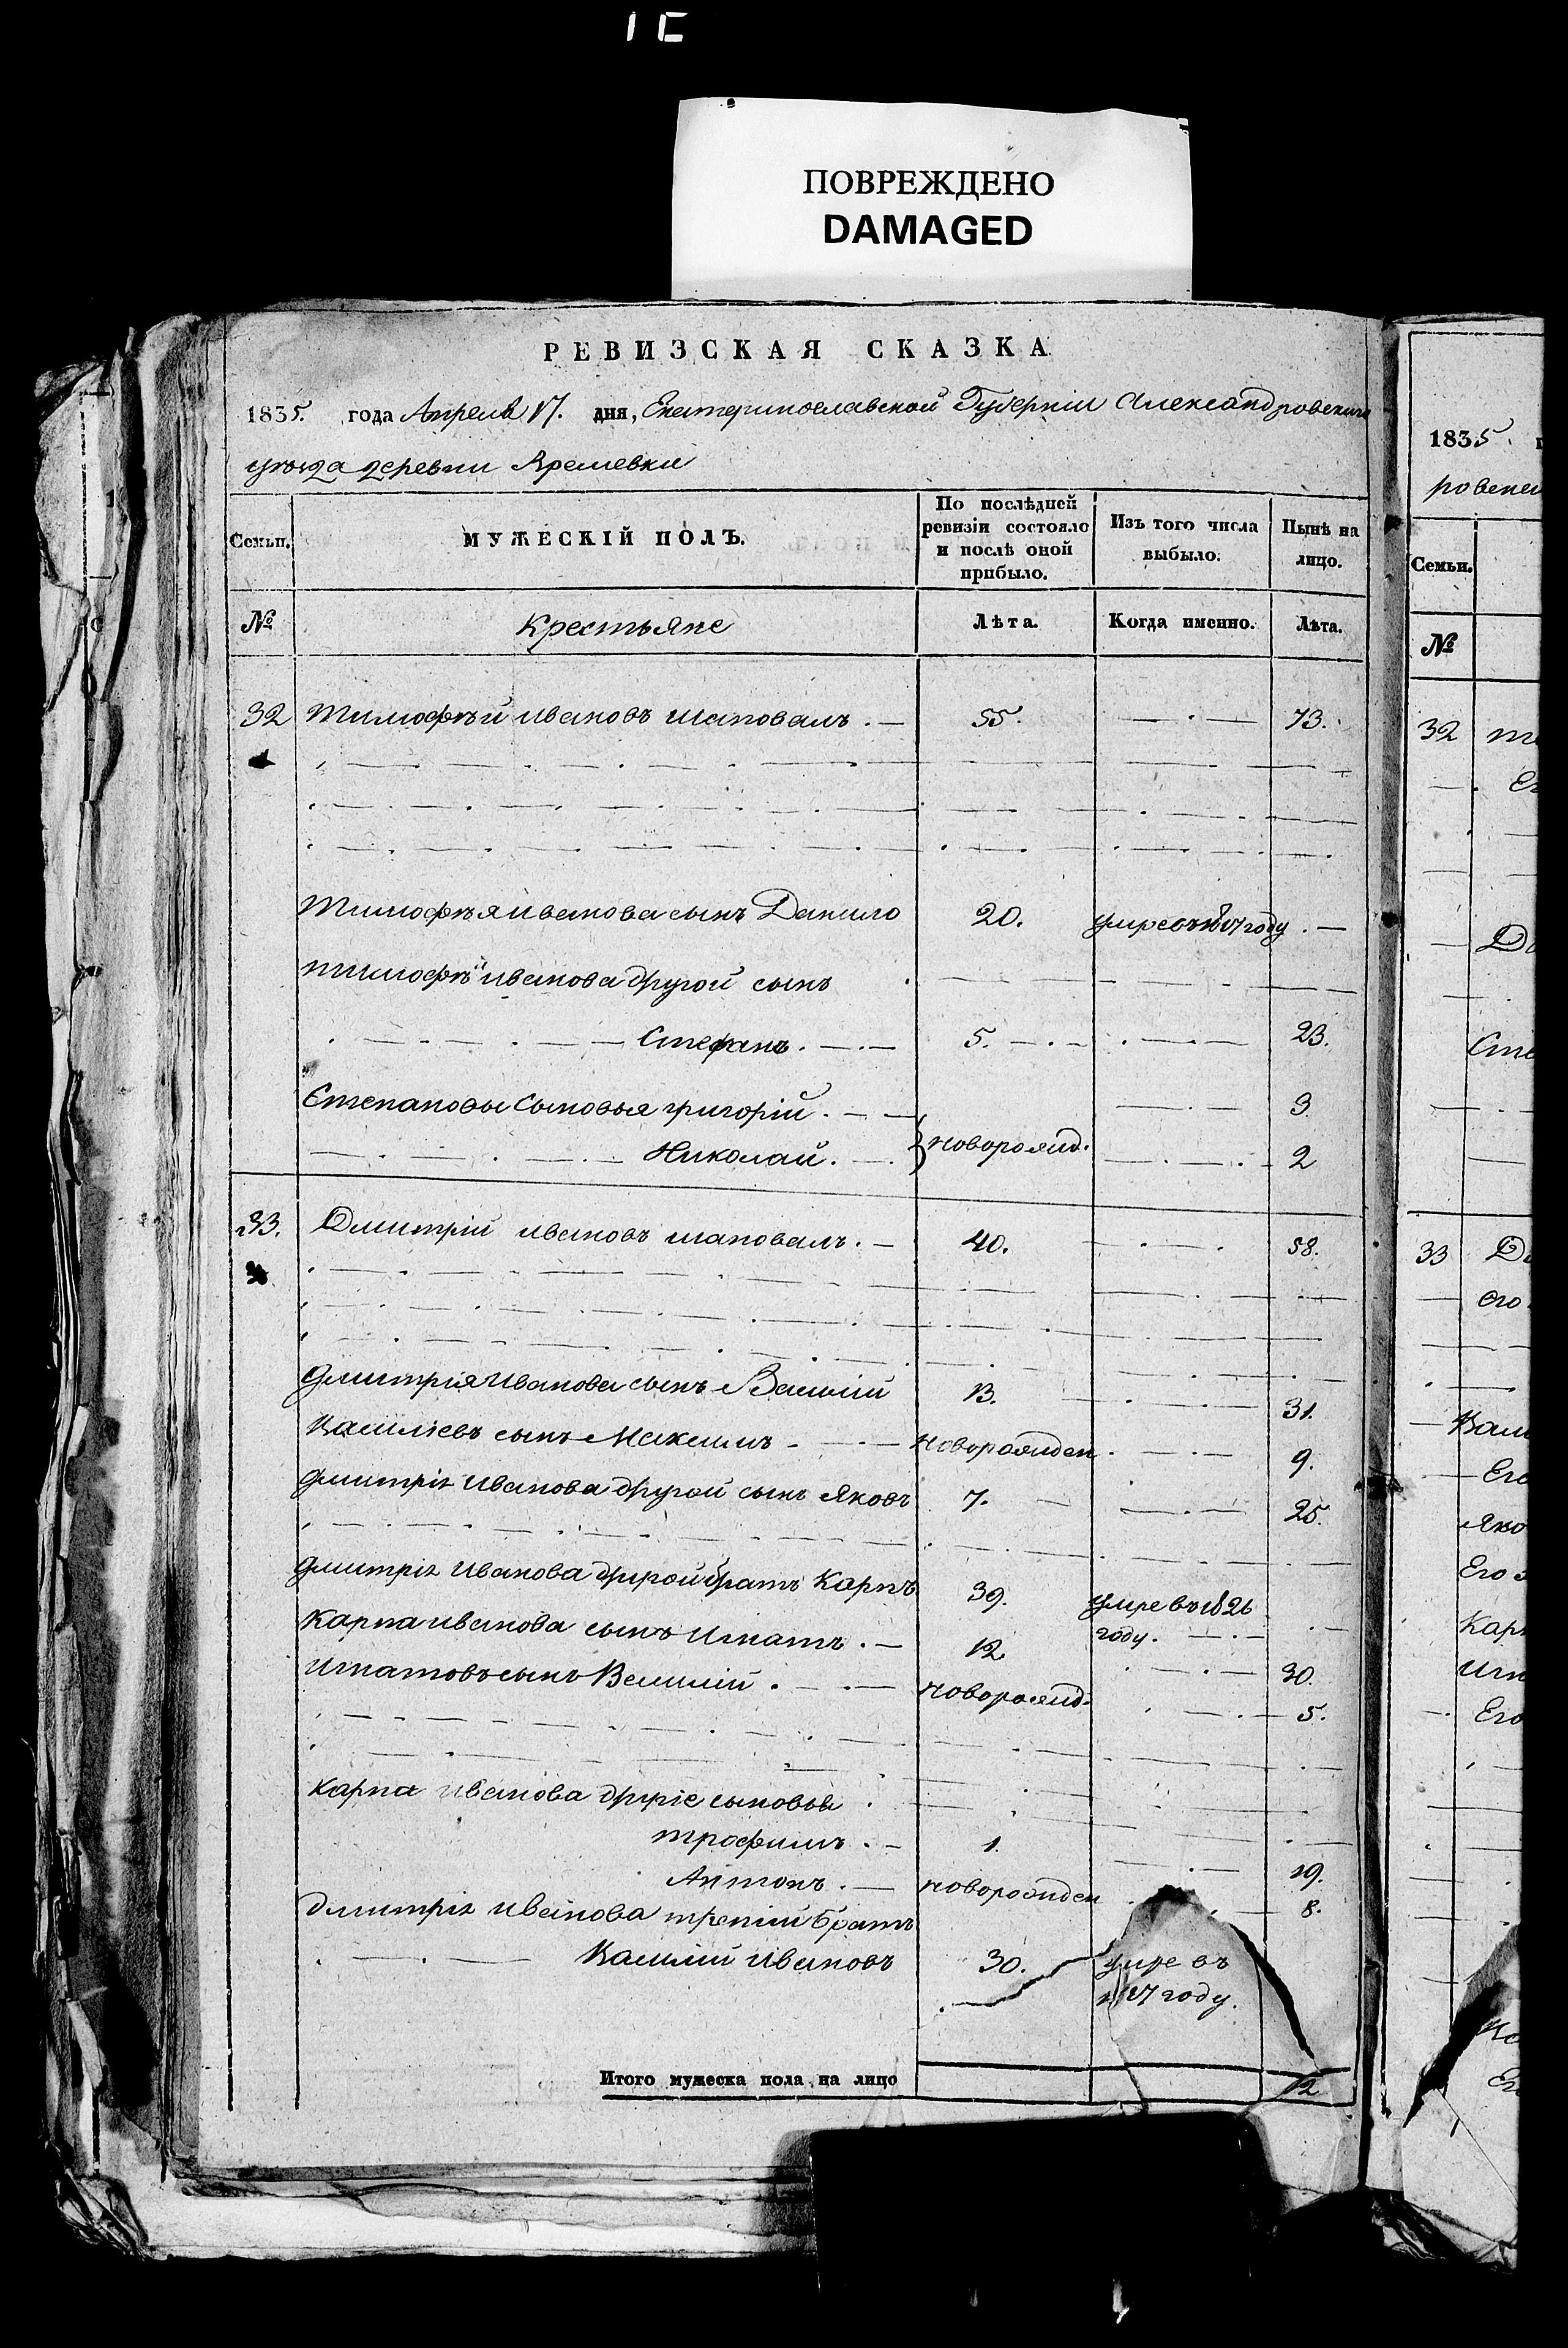 ПОВРЕЖДЕНО
DAMAGED
РЕВИЗСКАЯ СКАЗКА
1835. года Апреля 17. дня, Екатеринославской Губерніи Александровскаго
уезда деревни Яремевки
Семьи. МУЖЕСКІЙ ПОЛЪ. По послѣдней ревизіи состояло и послѣ оной прибыло. Изъ того числа выбыло. Нынѣ на лицо.
№ Крестьяне Лѣта. Когда именно. Лѣта.
32 Тимофѣй Ивановъ Шаповалъ. 55. 73.
Тимофѣя Иванова сынъ Данило 20. умре въ 1817 году.
Тимофѣя Иванова другой сынъ
Стефанъ. 5. 23.
Степановы сыновья Григорій. 3
Николай. } новорожд. 2
33. Дмитрій Ивановъ Шаповалъ. 40. 58.
Дмитрія Иванова сынъ Василій 13. 31.
Василіевъ сынъ Максимъ новорожден. 9.
Дмитрія Иванова другой сынъ Яковъ 7. 25.
Дмитрія Иванова другой братъ Карпъ 39. умре въ 1826
году.
Карпа Иванова сынъ Игнатъ. 12. 30.
Игнатовъ сынъ Василій. новорожд. 5.
Карпа Иванова другіе сыновья
Трофимъ. 1. 19.
Антонъ. новорожден 8.
Дмитрія Иванова третій братъ
Василій Ивановъ 30. умре въ
1827 году.
Итого мужеска пола на лицо 12
1835.
ровскаг
Семьи.
№
32
33